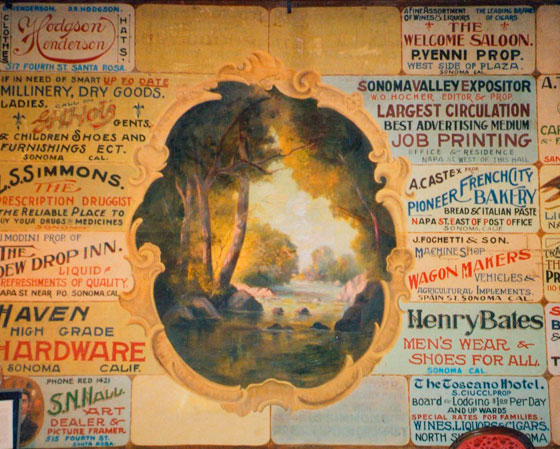 C. HENDERSON. A.R. HODGSON.
CLOTHES
Hodgson
Henderson
HATS.
517 FOURTH ST. SANTA ROSA.
IF IN NEED OF SMART UP TO DATE
MILLINERY, DRY GOODS.
LADIES. CALL ON GENTS,
& CHILDREN SHOES AND
FURNISHINGS ECT.
SONOMA CAL.
L.S. SIMMONS.
THE
PRESCRIPTION DRUGGIST
THE RELIABLE PLACE TO
BUY YOUR DRUGS & MEDICINES
SONOMA
J MODINI PROP. OF
THE
DEW DROP INN.
LIQUID
REFRESHMENTS OF QUALITY.
NAPA ST. NEAR P.O. SONOMA. CAL.
HAVEN
HIGH GRADE
HARDWARE
SONOMA CALIF.
PHONE RED 1421
S.N. HALL.
ART
DEALER &
PICTURE FRAMER
515 FOURTH ST.
SANTA ROSA.
A FINE ASSORTMENT THE LEADING BRANDS
OF WINES & LIQUORS OF CIGARS
THE
WELCOME SALOON.
P. VENNI PROP.
WEST SIDE OF PLAZA.
SONOMA CAL.
SONOMA VALLEY EXPOSITOR
W.O. HOCHER EDITOR & PROP.
LARGEST CIRCULATION
BEST ADVERTISING MEDIUM
JOB PRINTING
OFFICE & RESIDENCE
NAPA ST. WEST OF THIS HALL
A. CASTEX PROP.
PIONEER FRENCH CITY
BAKERY
BREAD & ITALIAN PASTE
NAPA ST. EAST OF POST OFFICE
SONOMA, CALIF.
J. FOCHETTI & SON.
MACHINE SHOP
WAGON MAKERS
VEHICLES &
AGRICULTURAL IMPLEMENTS.
SPAIN ST. SONOMA CAL.
Henry Bates
MEN'S WEAR &
SHOES FOR ALL.
SONOMA CAL.
The Toscano Hotel.
S. CIUCCI PROP
BOARD & LODGING $1.00 PER DAY
AND UP WARDS
SPECIAL RATES FOR FAMILIES.
WINES, LIQUORS & CIGARS.
NORTH SONOMA